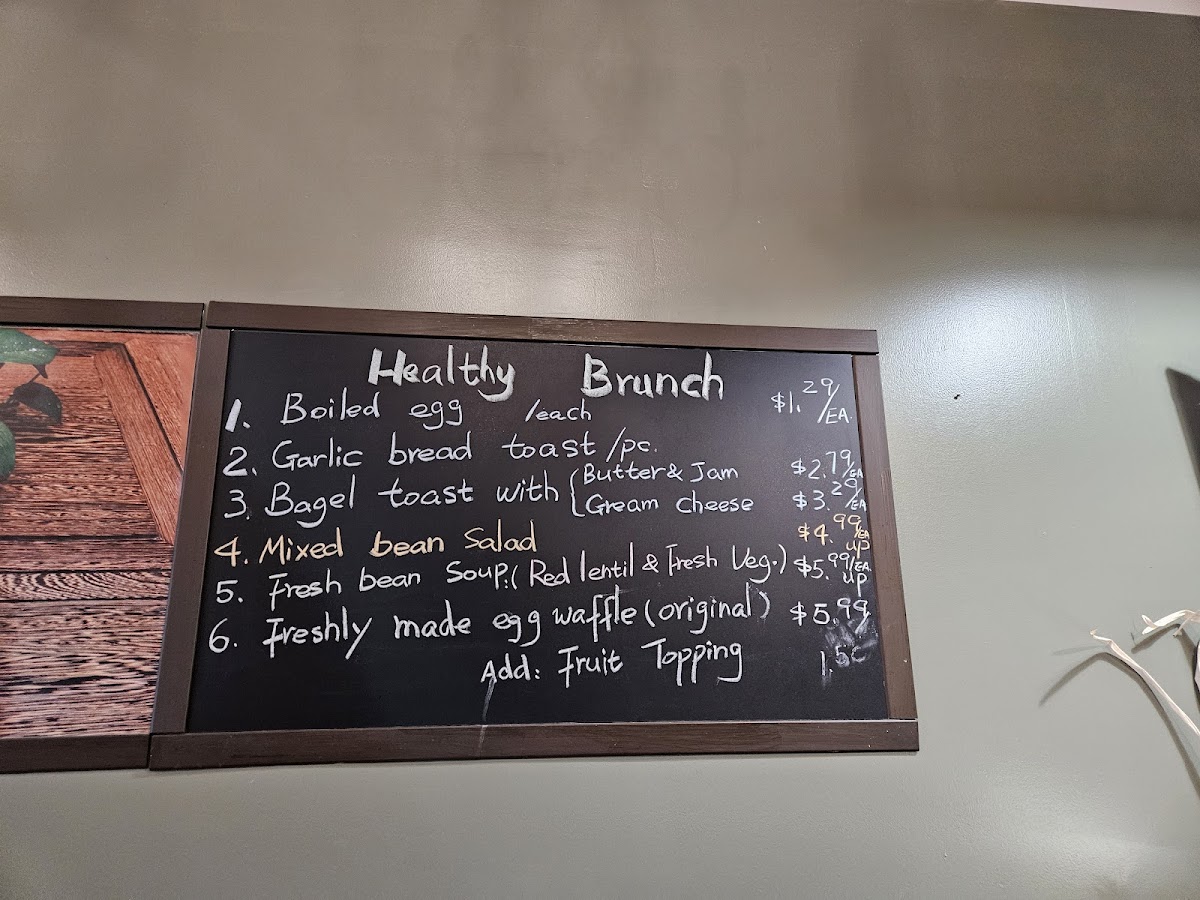 Healthy Brunch
1. Boiled egg /each $1.29/EA.
2. Garlic bread toast /pc. $2.79/EA
3. Bagel toast with { Butter & Jam
Cream cheese $3.29/EA
4. Mixed bean Salad $4.99/EA up
5. Fresh bean Soup: (Red lentil & Fresh Veg.) $5.99/EA. up
6. Freshly made egg waffle (original) $5.99
Add: Fruit Topping